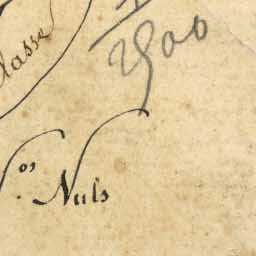 lasse
2500
N.os Nuls